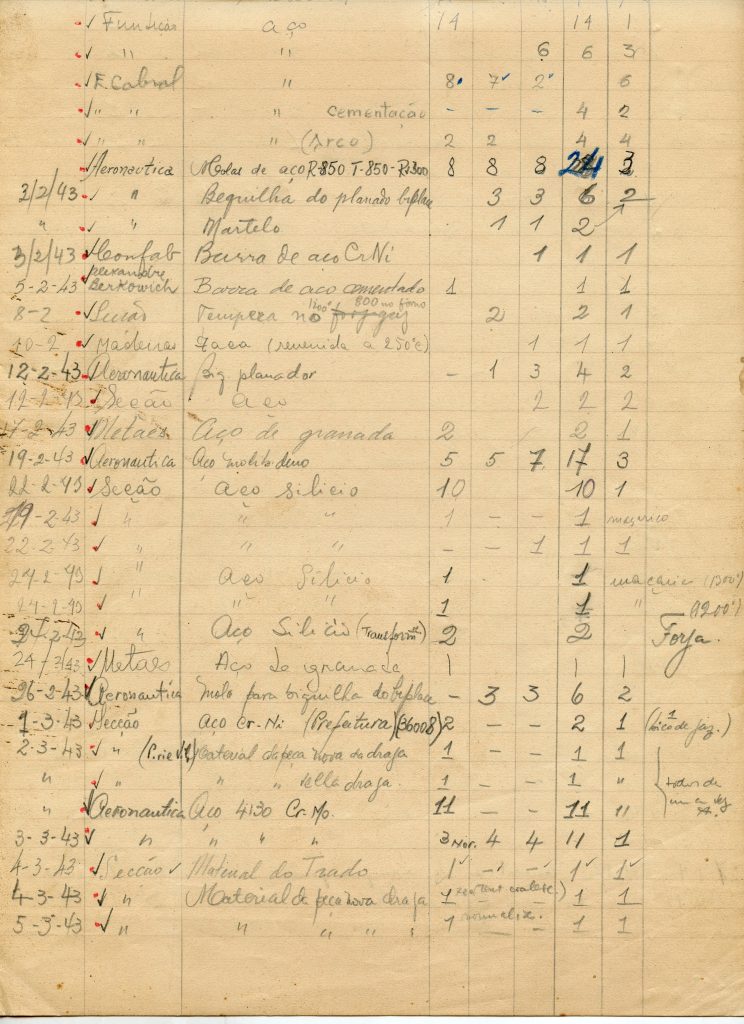 Fundição aço 14 14 1
" " 6 6 3
F. Cabral " 8 7 2 6
" " " cementação – – – 4 2
" " " (Arco) 2 2 4 4
Aeronautica Molas de aço R-850 T-850-Rv300 8 8 8 24 3
3/2/43 " Bequilha do planado biplace 3 3 6 2
" " Martelo 1 1 2
3/2/43 Confab Barra de aço CrNi 1 1 1
5-2-43 Alexandre Berkowich Barra de aço cementado 1 1 1
8-2 Tempera no 800 no forno 2 2 1
10-2 Madeiras Faca (revenida a 250°c) 1 1 1
12-2-43 Aeronautica Biq. planador – 1 3 4 2
12-2-43 Secção Aço 2 2 2
17-2-43 Metaes Aço de granada 2 2 1
19-2-43 Aeronautica Aço molibdeno 5 5 7 17 3
22-2-43 Secção Aço Silicio 10 10 1
19-2-43 " " " 1 – – 1 maçarico
22-2-43 " " " – – 1 1 1
24-2-43 " Aço Silicio 1 1 (1300°)
24-2-43 " " " 1 1 " (1200°)
" Aço Silicio (Transform) 2 2 Forja.
24/2/43 Metaes Aço de granada 1 1 1
26-2-43 Aeronautica mola para biquilha do biplace – 3 3 6 2
1-3-43 Secção Aço Cr-Ni (Prefeitura) (36008) 2 – – 2 1 (bico de gaz.)
2-3-43 " material da peça nova da draga 1 – – 1 1
" " " draga. 1 – – 1 "
" Aeronautica Aço 4130 Cr-Mo. 11 – – 11 "
3-3-43 " " " " 3 Nor. 4 4 11 1
4-3-43 Secção Material do Trado 1 – – 1 1
4-3-43 " Material de peça nova draga 1 – 1 1
5-3-43 " " " " " 1 normaliz. – 1 1